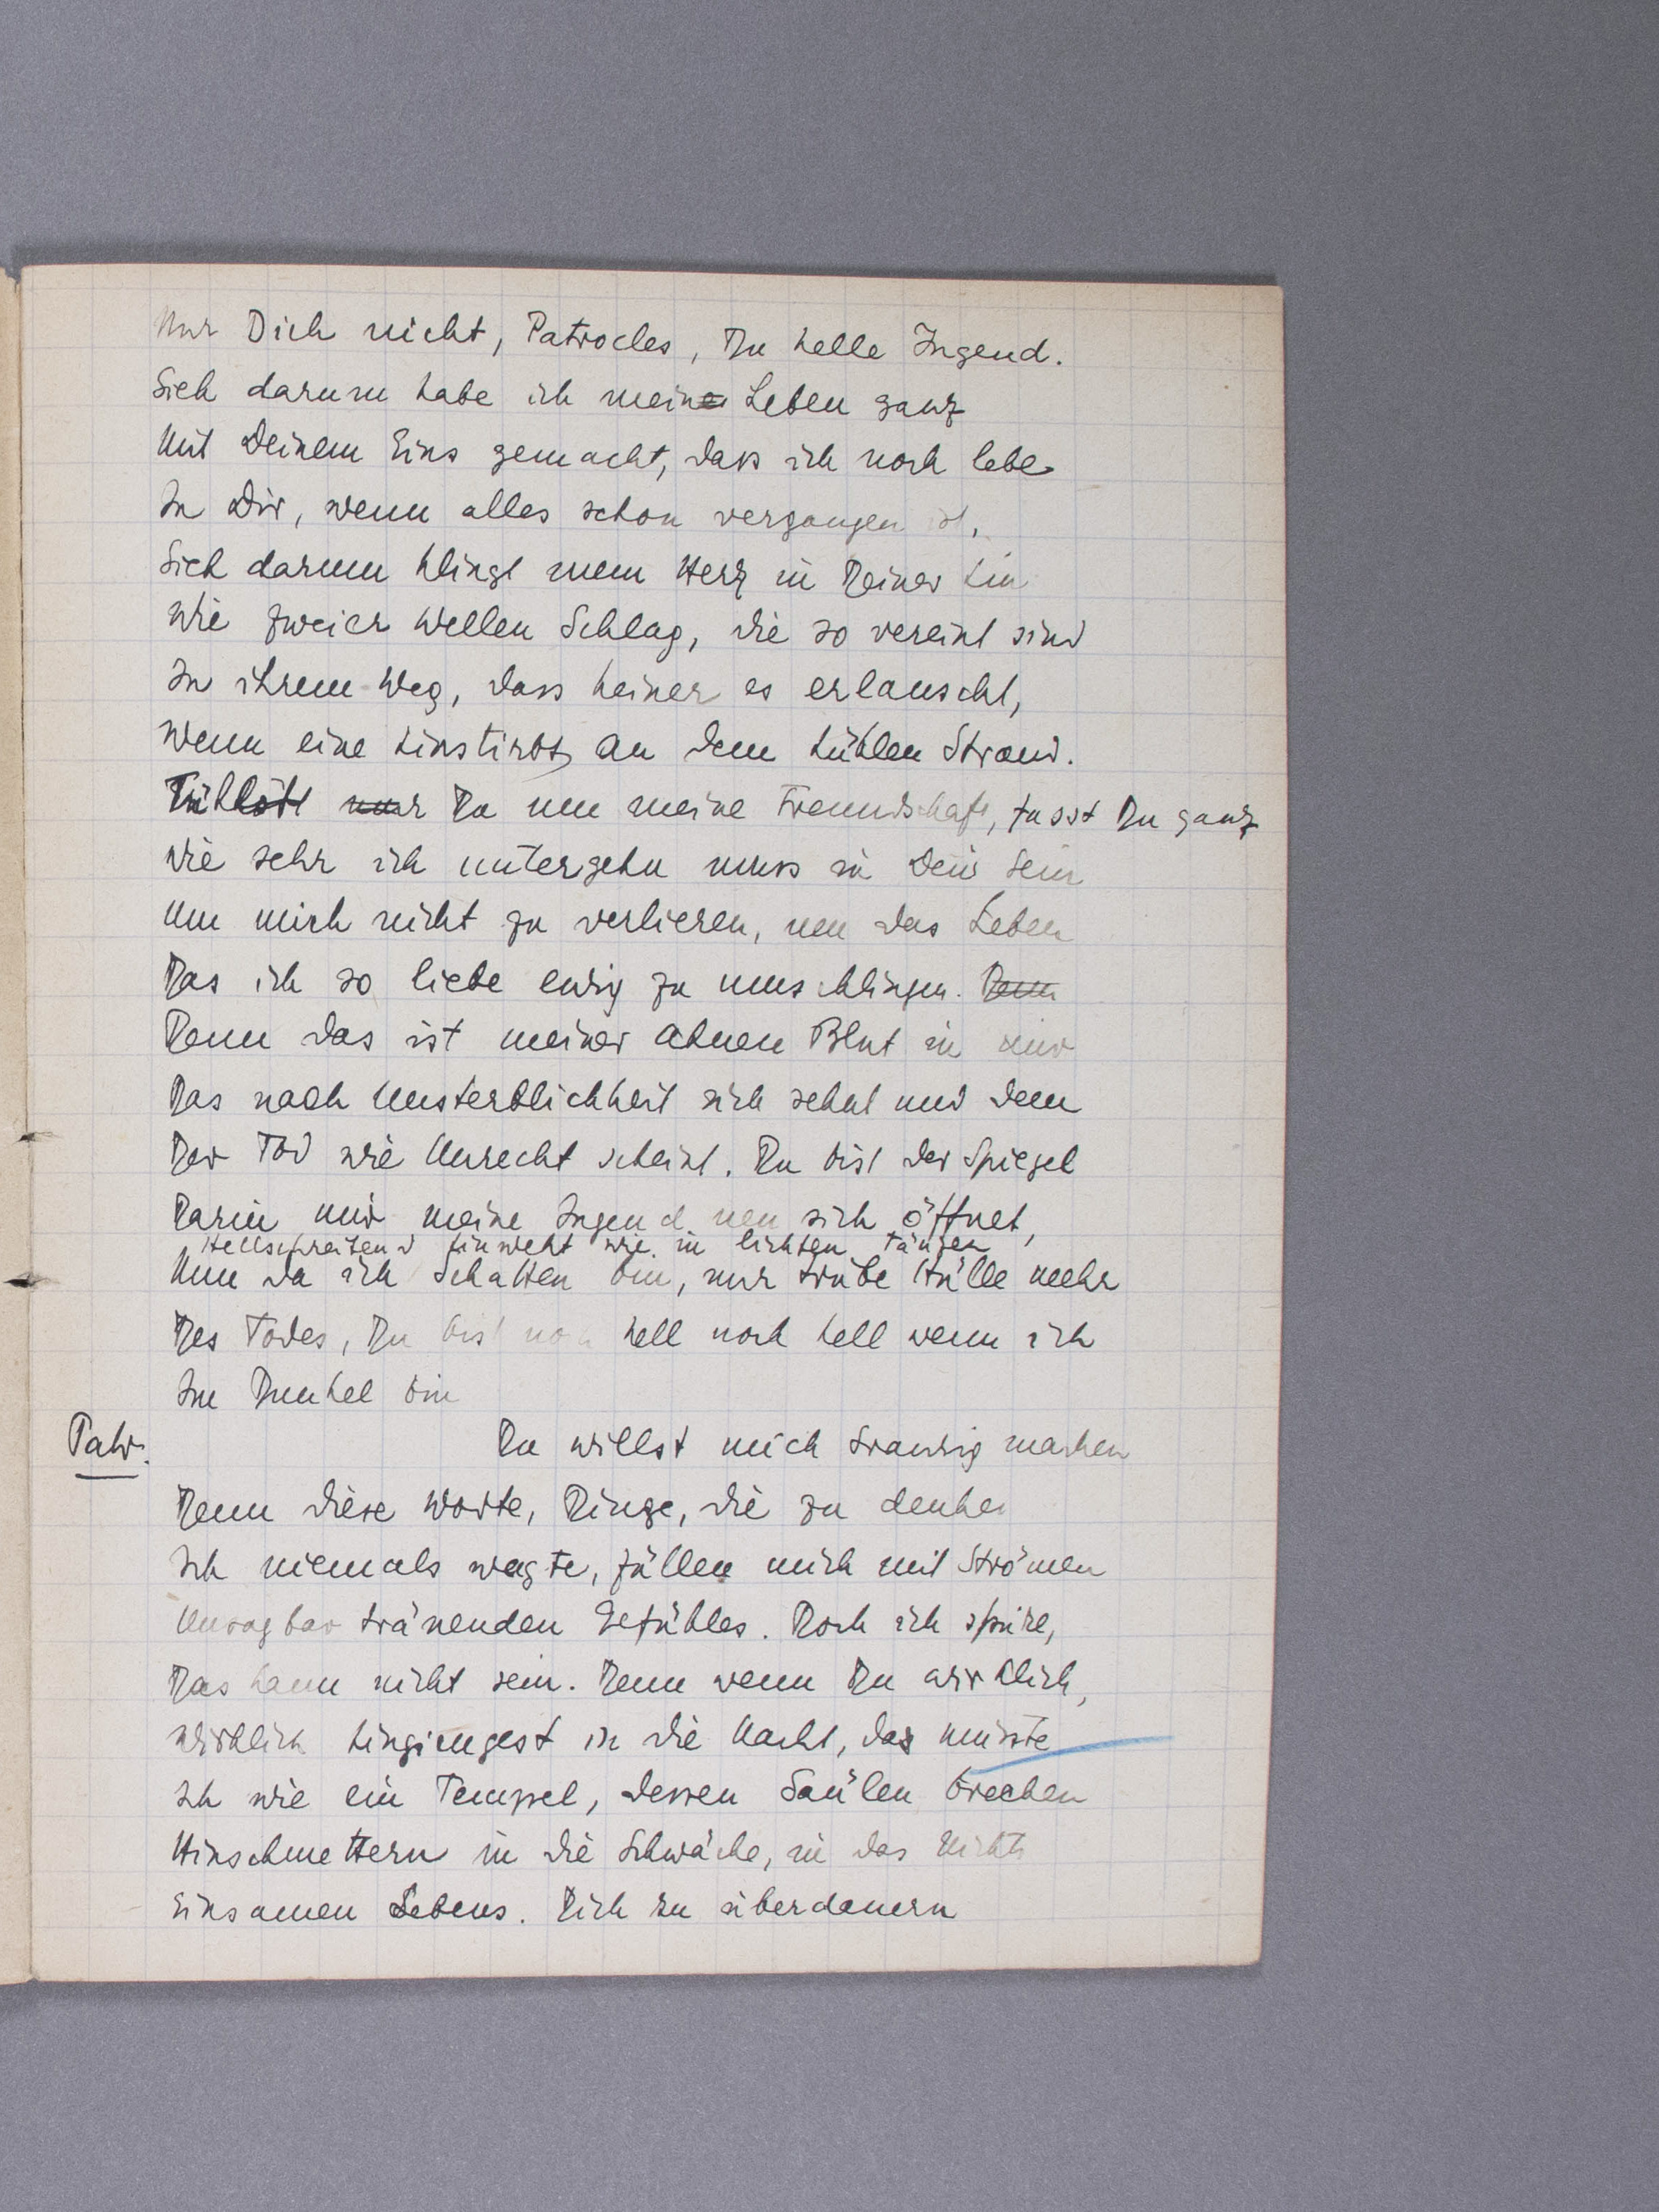 Nur Dich nicht, Patrocles, Du helle Jugend.
Sieh darum habe ich mein Leben ganz
Mit Deinem Eins gemacht, dass ich noch lebe
In Dir, wenn alles schon vergangen ist,
Sieh darum klingt mein Herz in Deines hin
Wie zweier Wellen Schlag, die so vereint sind
In ihrem Weg, dass keiner es erlauscht,
Wenn eine hinstirbt an dem kühlen Strand.
Fühlst Du nun meine Freundschaft, fasst Du ganz
Wie sehr ich untergehn muss in Dein Sein
Um mich nicht zu verlieren, um das Leben
Das ich so liebe ewig zu umschlingen. Denn
Denn das ist meiner Ahnen Blut in mir
Das nach Unsterblichkeit sich sehnt und dem
Der Tod wie Unrecht scheint. Du bist der Spiegel
Darin mir meine Jugend neu sich öffnet,
Hellschreitend hinweht wie in lichten Tänzen
Nun da ich Schatten bin, nur trübe Hülle mehr
Des Todes, Du bist noch hell noch hell wenn ich
Im Dunkel bin
Patr.
Du willst mich traurig machen
Denn diese Worte, Dinge, die zu denken
Ich niemals wagte, füllen mich mit Strömen
Unsagbar tränenden Gefühles. Doch ich spüre,
Das kann nicht sein. Denn wenn Du wirklich,
wirklich hingiengest in die Nacht, da müsste
Ich wie ein Tempel, dessen Säulen brechen
Hinschmettern in die Schwäche, in das Nichts
Einsamen Lebens. Dich zu überdauern